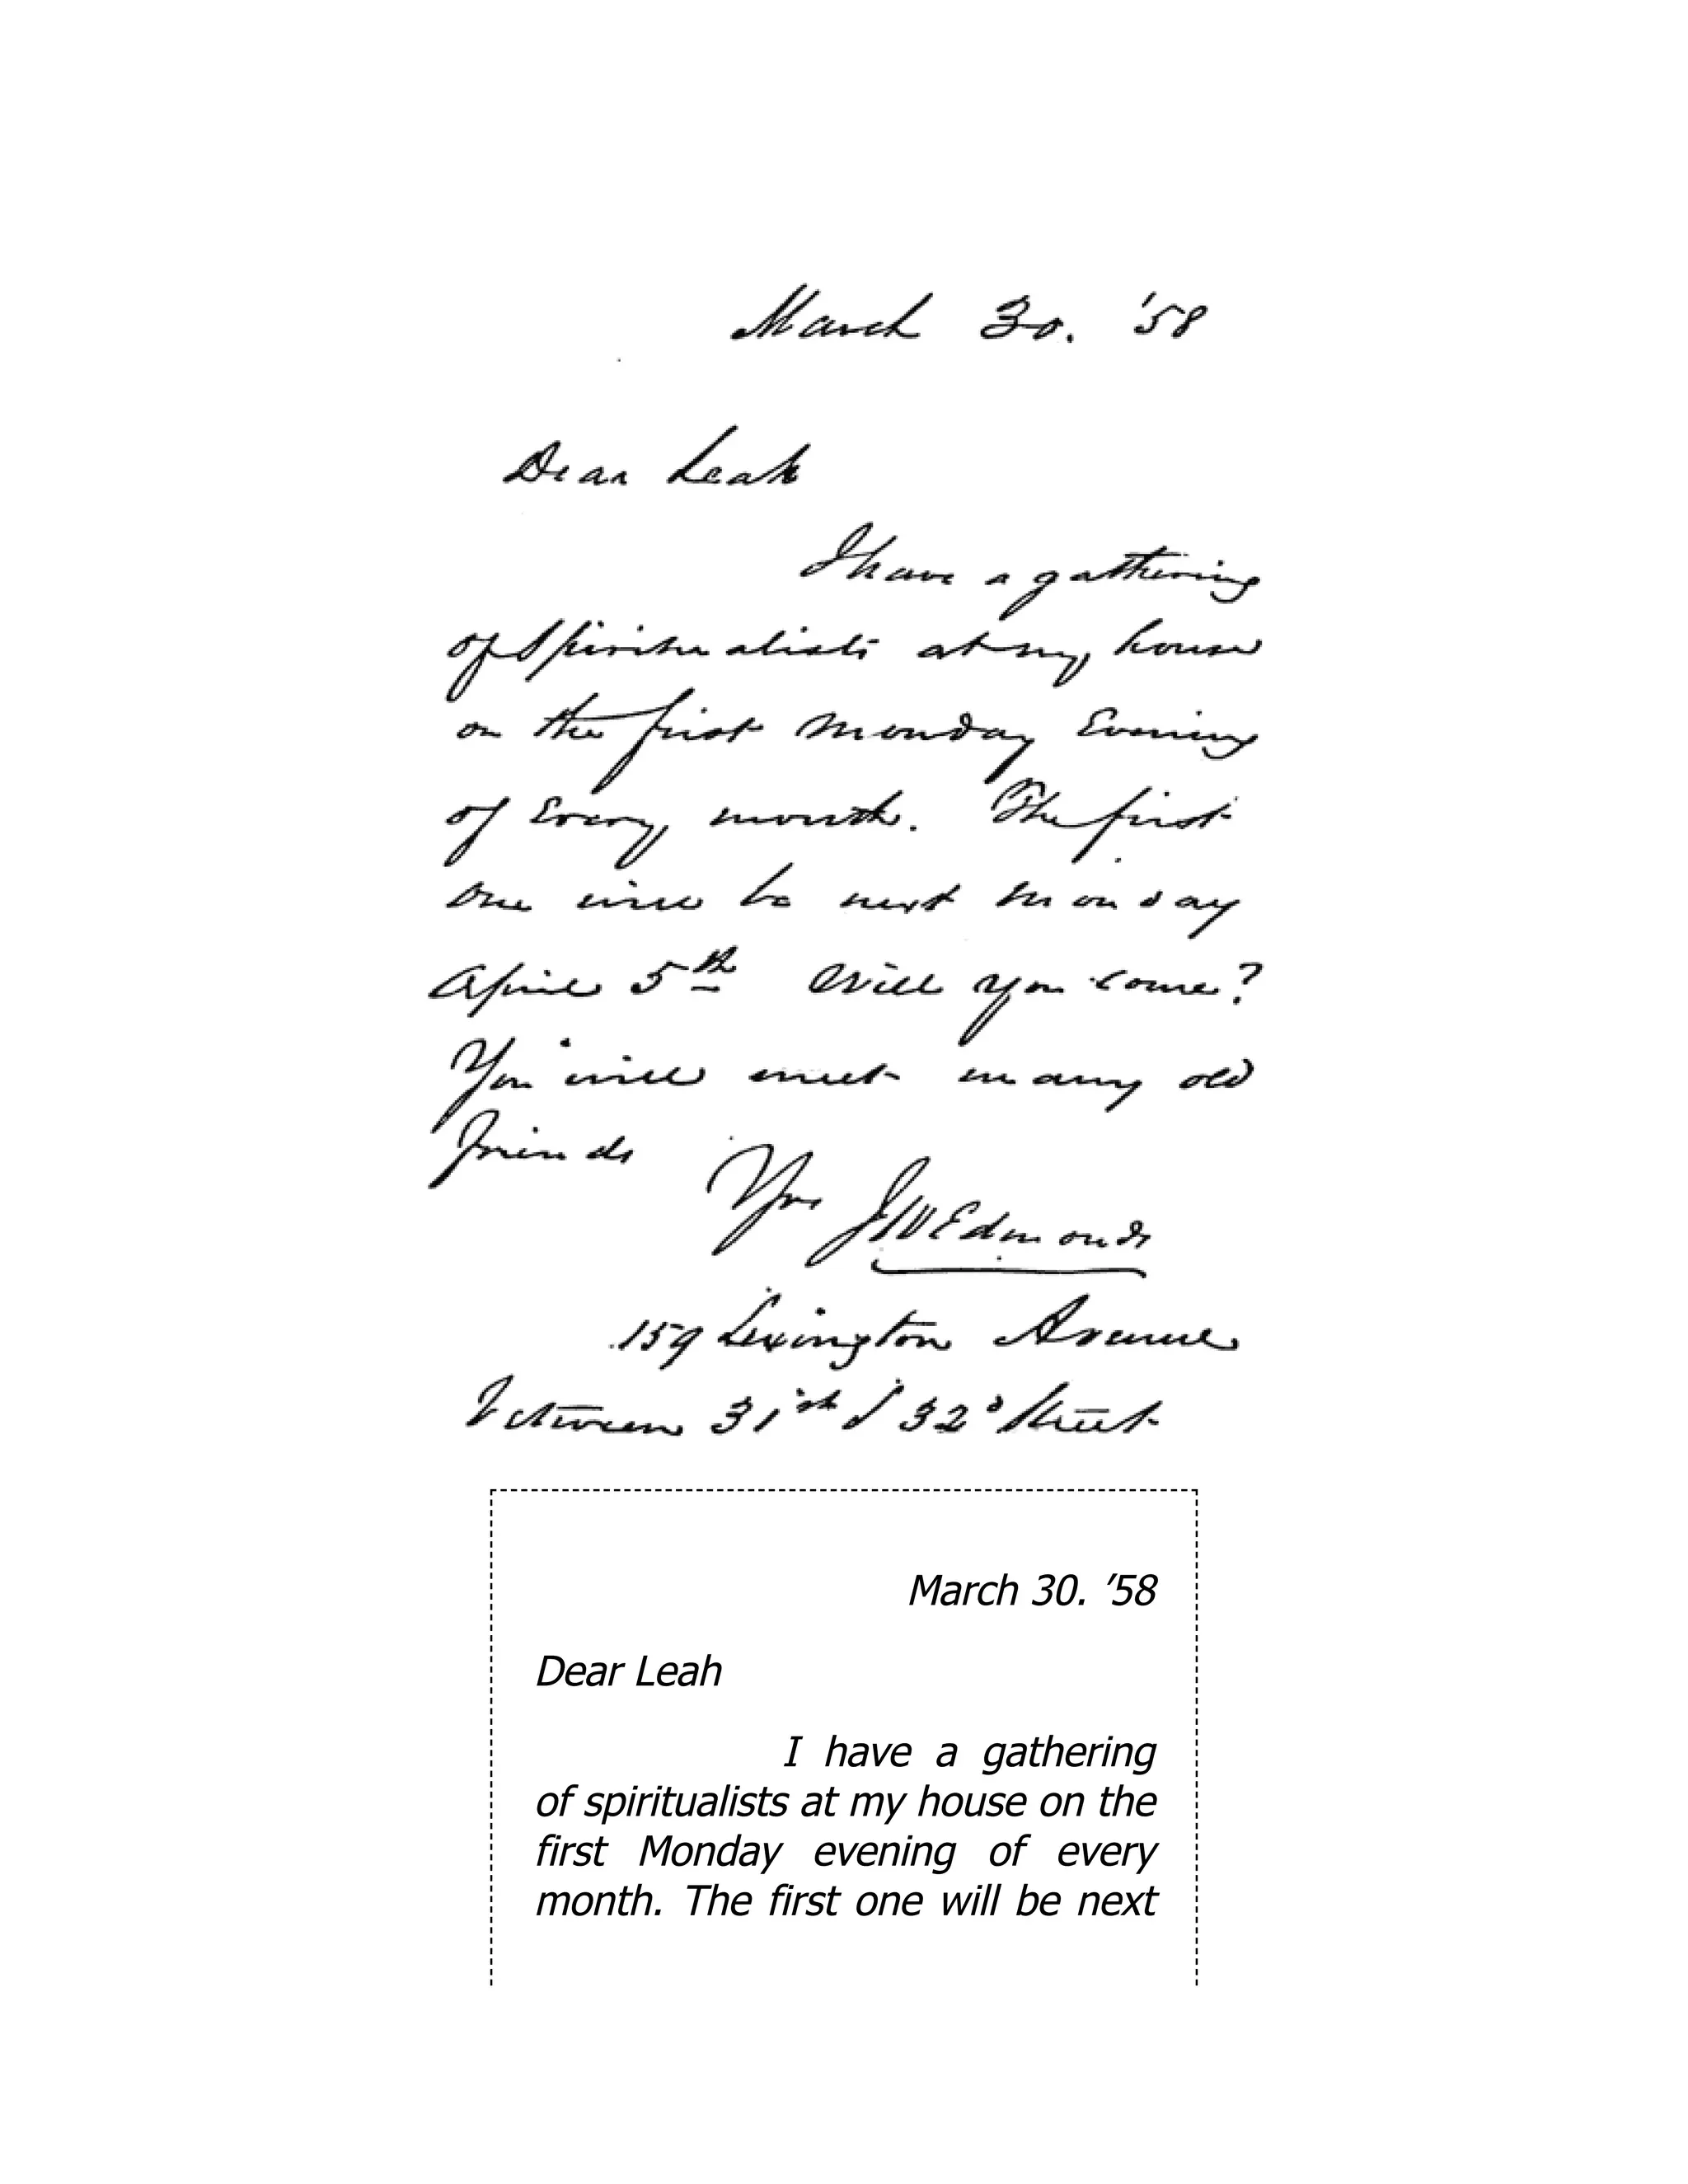 March 30. '58
Dear Leah
I have a gathering
of Spiritualists at my house
on the first Monday Evening
of Every month. The first
one will be next Monday
April 5th Will you come?
You will meet many old
friends
Yrs JWEdmonds
159 Lexington Avenue
between 31st & 32d Street
March 30. ’58
Dear Leah
I have a gathering
of spiritualists at my house on the
first Monday evening of every
month. The first one will be next